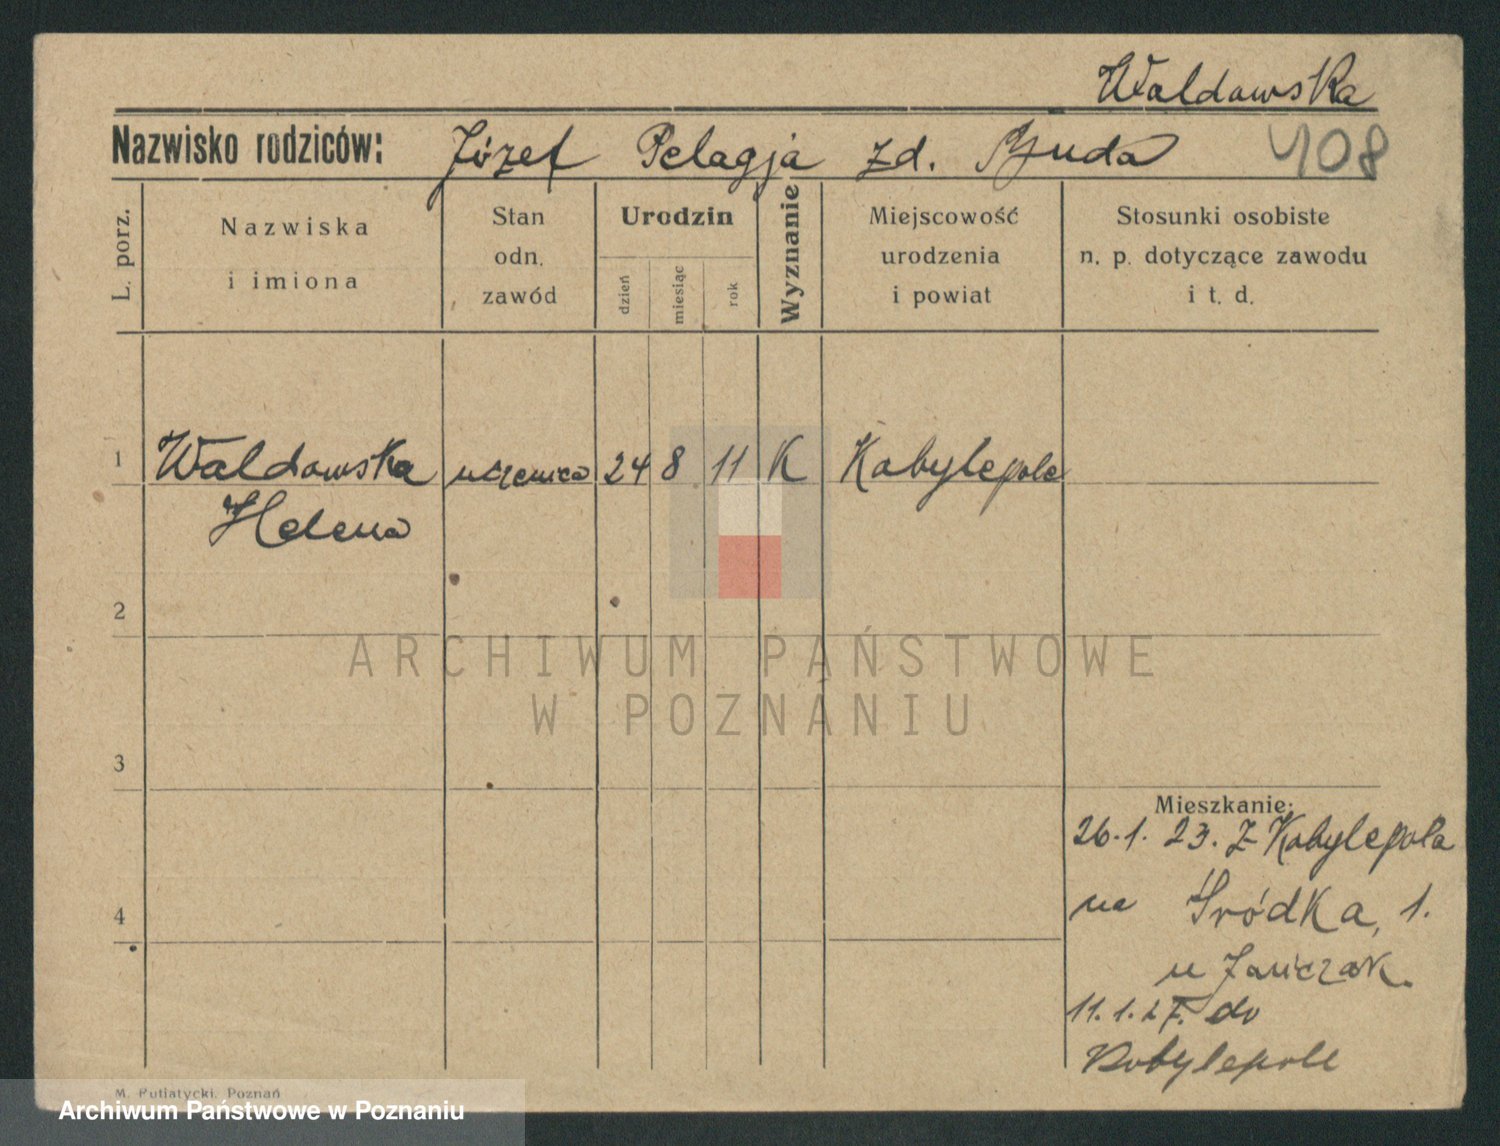 Waldowska
Nazwisko rodziców: Józef Pelagja zd. Buda
408
L. porz.
Nazwiska
i imiona
Stan
odn.
zawód
Urodzin
dzień
miesiąc
rok
Wyznanie
Miejscowość
urodzenia
i powiat
Stosunki osobiste
n. p. dotyczące zawodu
i t. d.
1 Waldowska uczenica 24 8 11 K Kobylepole
Helena
2
ARCHIWUM PAŃSTWOWE
W POZNANIU
3
Mieszkanie:
26.1. 23. z Kobylepola
4
na Śródka, 1.
u Jańczak.
11.1.27. do
Kobylepole
M. Putiatycki, Poznań
Archiwum Państwowe w Poznaniu